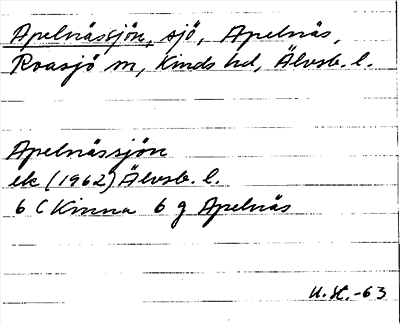 Apelnässjön, sjö, Apelnäs,
Roasjö sn, Kinds hd, Älvsb. l.
Apelnässjön
ek (1962) Älvsb. l.
6 C Kinna 6 g Apelnäs
U. St. -63